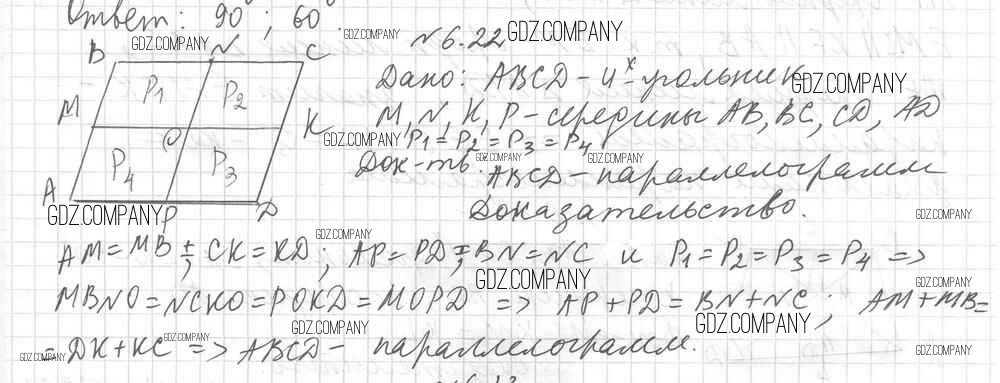 Ответ: 90°; 60°
GDZ.COMPANY
GDZ.COMPANY
№6.22
GDZ.COMPANY
B
N
C
P1
P2
M
K
O
P4
P3
A
P
D
Дано: ABCD - 4х-угольник
GDZ.COMPANY
M, N, K, P - середины AB, BC, CD, AD
GDZ.COMPANY
P1 = P2 = P3 = P4
Док-ть: ABCD - параллелограмм
GDZ.COMPANY
GDZ.COMPANY
Доказательство.
GDZ.COMPANY
GDZ.COMPANY
GDZ.COMPANY
AM = MB; CK = KD; AP = PD; BN = NC и P1 = P2 = P3 = P4 =>
GDZ.COMPANY
GDZ.COMPANY
MBNO = NCKO = POKD = MOPD => AP + PD = BN + NC; AM + MB =
GDZ.COMPANY
GDZ.COMPANY
= DK + KC => ABCD - параллелограмм.
GDZ.COMPANY
GDZ.COMPANY
GDZ.COMPANY